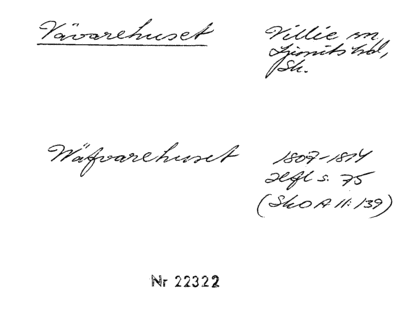 Vävarehuset
Villie sn,
Ljunits hd,
Sk.
Wäfvarehuset
1807-1814
Hfl s. 75
(SkOA II:139)
Nr 22322